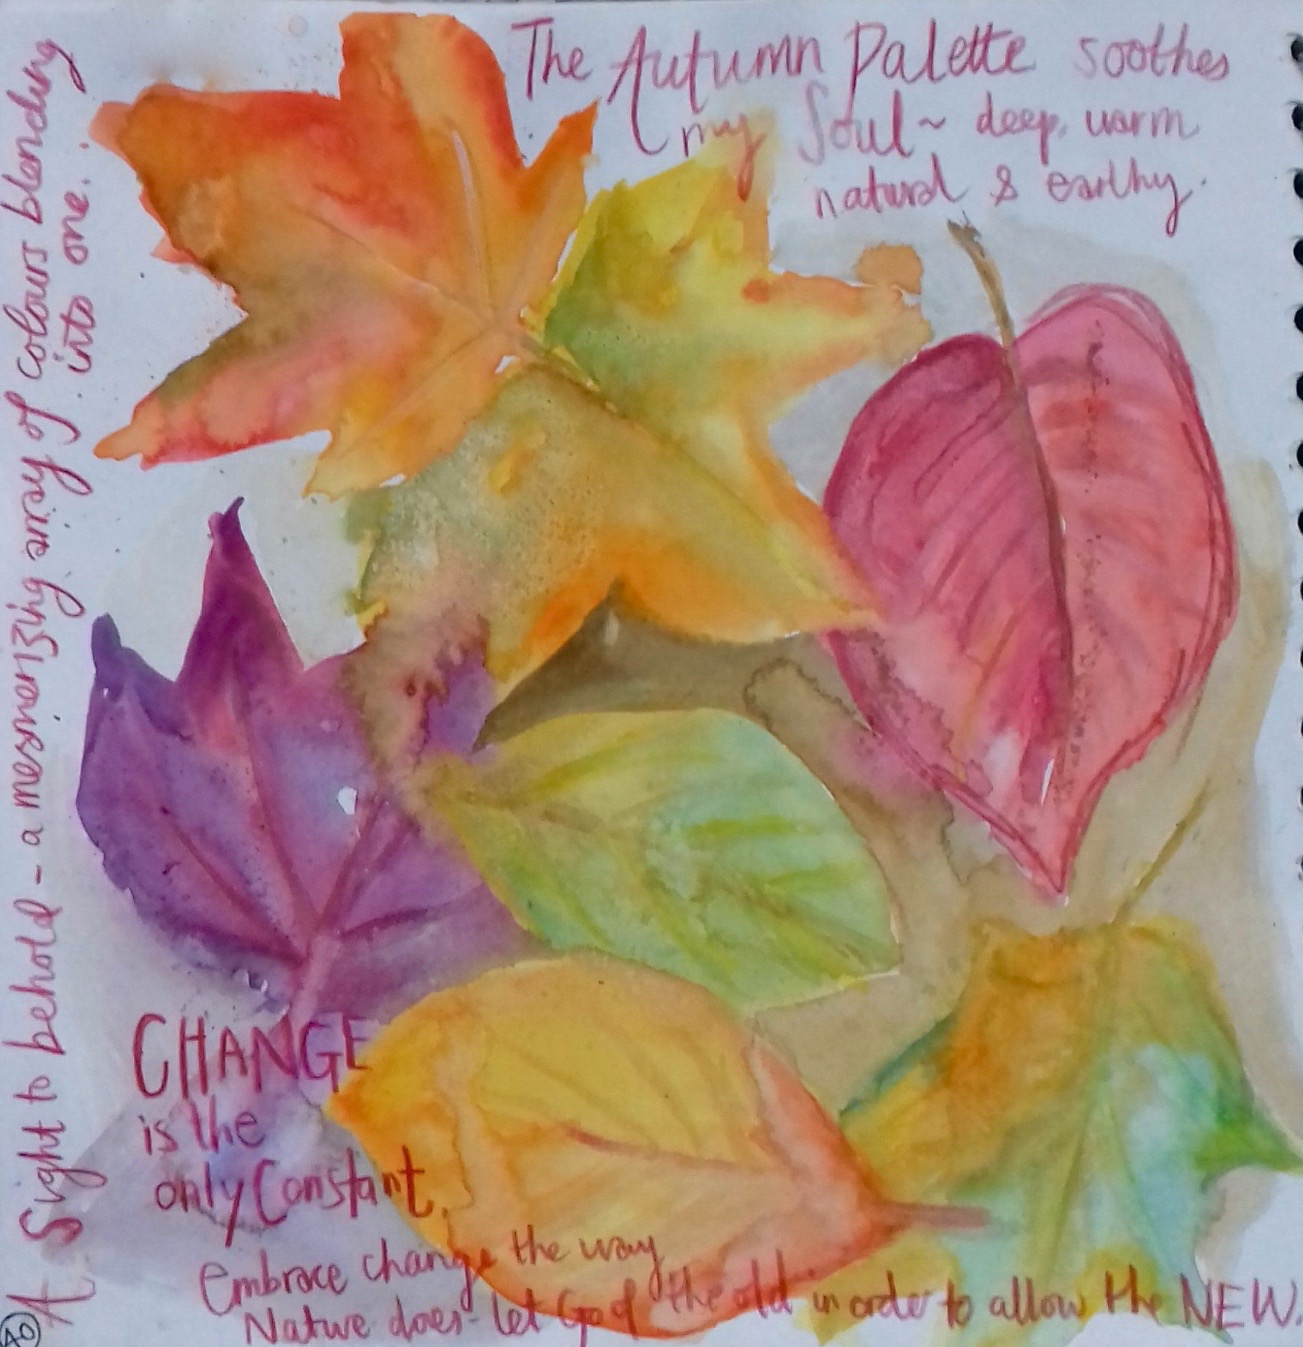 The Autumn Palette soothes
my Soul ~ deep, warm
natural & earthy.
A Sight to behold - a mesmerizing array of colours blending
into one.
CHANGE
is the
only Constant.
Embrace change the way
Nature does - let Go of the old in order to allow the NEW.
40